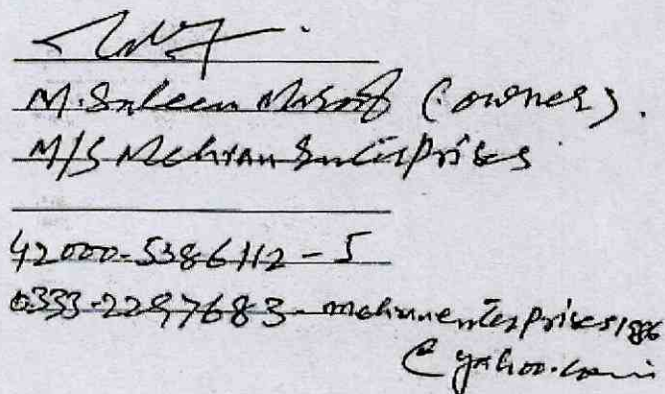 M. Saleem (owner).
M/S Mehran Enterprises
42000-5386112-5
0333-2297683-mehranenterprises1986
@yahoo.com